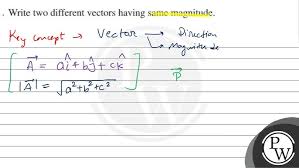 . Write two different vectors having same magnitude.
Key concept → Vector → Direction
→ Magnitude
$\vec{A} = a\hat{i} + b\hat{j} + c\hat{k}$
$|\vec{A}| = \sqrt{a^2 + b^2 + c^2}$
$\vec{P}$
PW